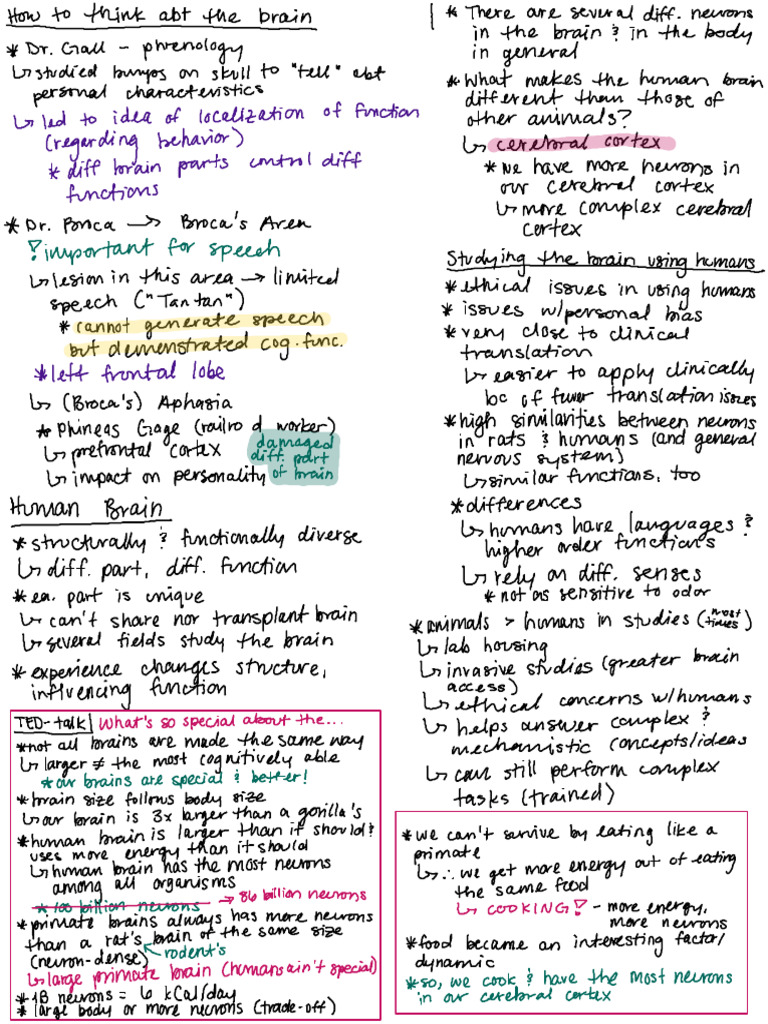 How to think abt the brain
* Dr. Gall – phrenology
↳ studied bumps on skull to "tell" abt
personal characteristics
↳ led to idea of localization of function
(regarding behavior)
* diff brain parts control diff
functions
* Dr. Broca → Broca's Area
! important for speech
↳ lesion in this area → limited
speech ("Tan tan")
* cannot generate speech
but demonstrated cog. func.
* left frontal lobe
↳ (Broca's) Aphasia
* Phineas Gage (railroad worker)
↳ prefrontal cortex
↳ impact on personality
damaged
diff. part
of brain
Human Brain
* structurally & functionally diverse
↳ diff. part, diff. function
* ea. part is unique
↳ can't share nor transplant brain
↳ several fields study the brain
* experience changes structure,
influencing function
TED-talk What's so special about the...
* not all brains are made the same way
↳ larger ≠ the most cognitively able
* our brains are special & better!
* brain size follows body size
↳ our brain is 3x larger than a gorilla's
* human brain is larger than it should &
uses more energy than it should
↳ human brain has the most neurons
among all organisms
* 100 billion neurons → 86 billion neurons
* primate brains always has more neurons
than a rat's brain of the same size
(neuron-dense) rodent's
↳ large primate brain (humans ain't special)
* 1B neurons = 6 kcal/day
* large body or more neurons (trade-off)
* There are several diff. neurons
in the brain & in the body
in general
* What makes the human brain
different than those of
other animals?
↳ cerebral cortex
* we have more neurons in
our cerebral cortex
↳ more complex cerebral
cortex
Studying the brain using humans
* ethical issues in using humans
* issues w/personal bias
* very close to clinical
translation
↳ easier to apply clinically
bc of fewer translation issues
* high similarities between neurons
in rats & humans (and general
nervous system)
↳ similar functions, too
* differences
↳ humans have languages &
higher order functions
↳ rely on diff. senses
* not as sensitive to odor
* animals > humans in studies (most times)
↳ lab housing
↳ invasive studies (greater brain
access)
↳ ethical concerns w/humans
↳ helps answer complex &
mechanistic concepts/ideas
↳ can still perform complex
tasks (trained)
* we can't survive by eating like a
primate
↳ ∴ we get more energy out of eating
the same food
↳ COOKING! – more energy,
more neurons
* food became an interesting factor/
dynamic
* so, we cook & have the most neurons
in our cerebral cortex